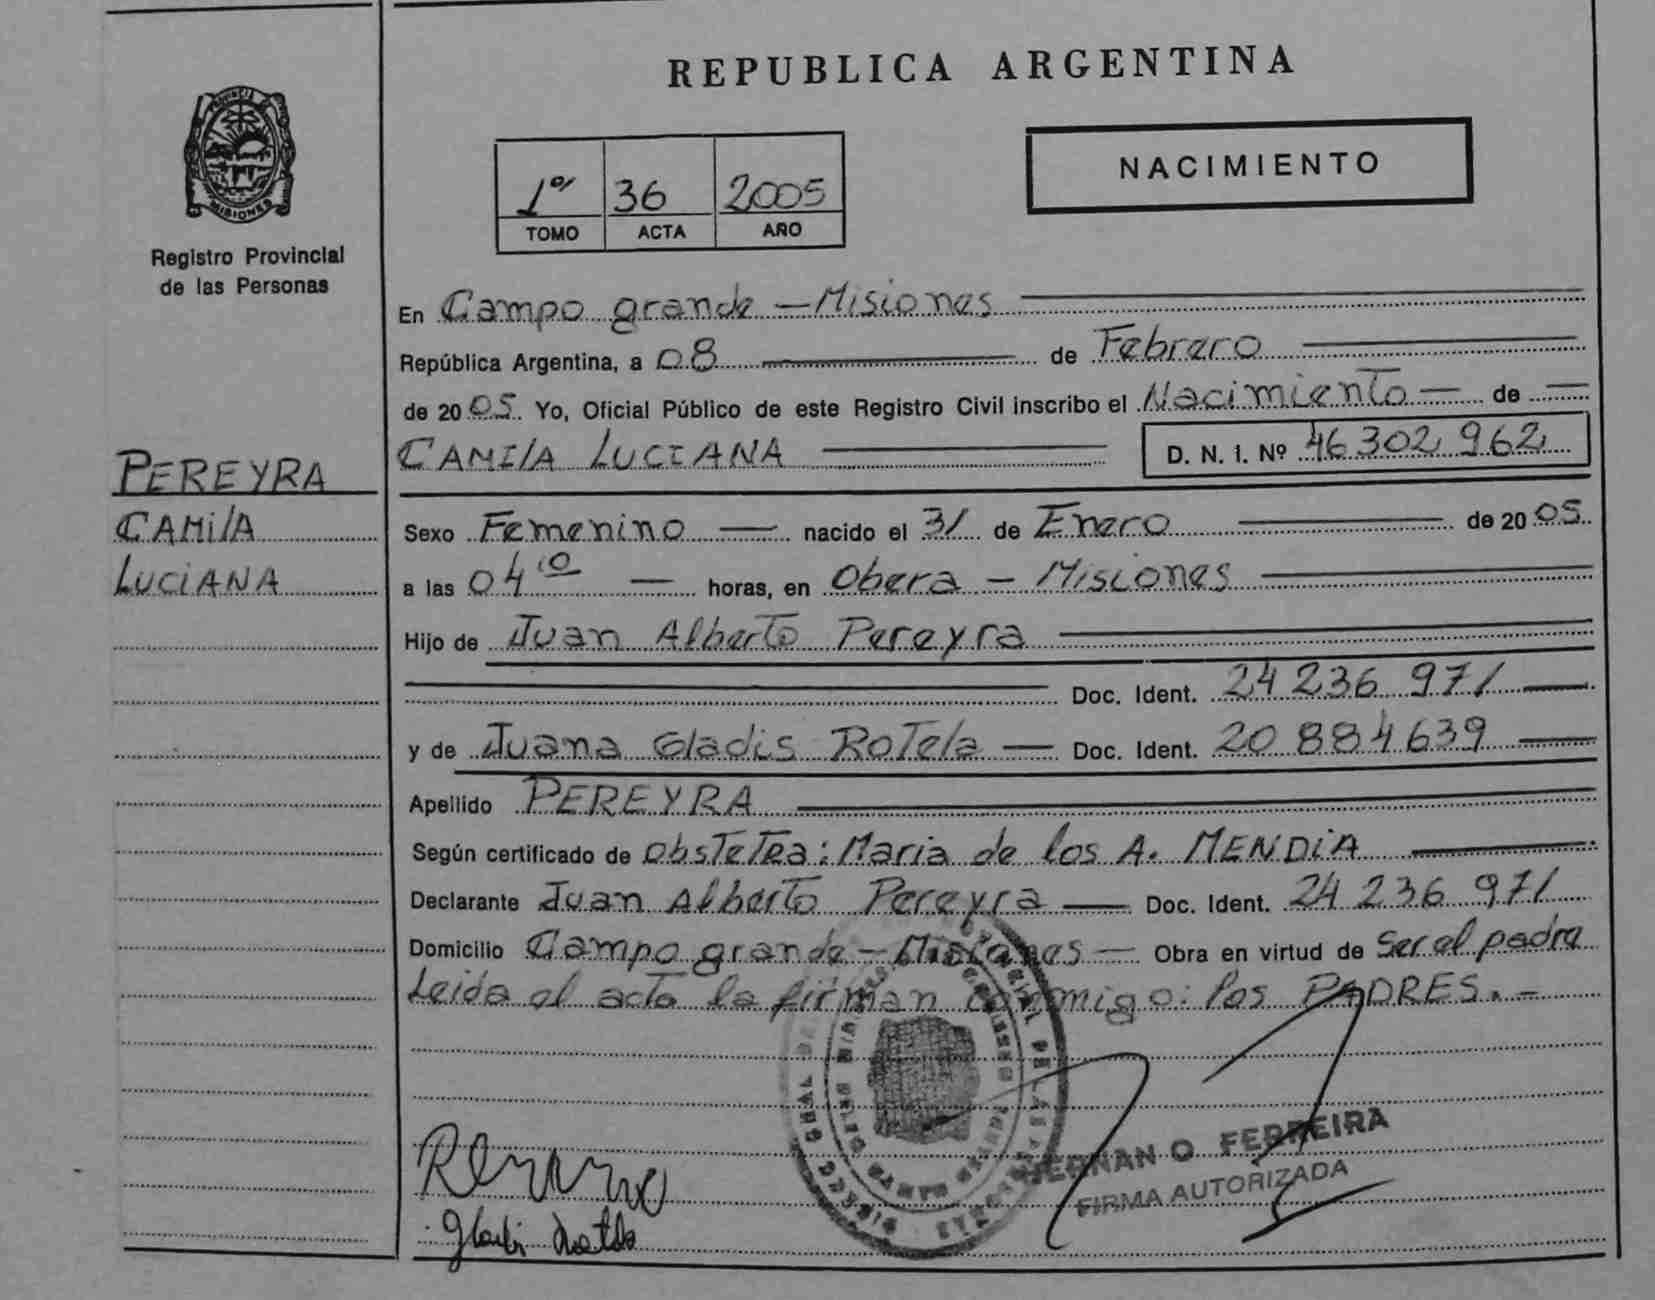 REPUBLICA ARGENTINA
PROVINCIA DE
MISIONES
Registro Provincial
de las Personas
1º 36 2005
TOMO ACTA AÑO
NACIMIENTO
En Campo grande — Misiones
República Argentina, a 08 de Febrero
de 2005. Yo, Oficial Público de este Registro Civil inscribo el Nacimiento — de —
CAMILA LUCIANA D. N. I. Nº 46302962
PEREYRA
CAMILA
LUCIANA
Sexo Femenino — nacido el 31 de Enero de 2005
a las 04 10 — horas, en Obera — Misiones
Hijo de Juan Alberto Pereyra
Doc. Ident. 24 236 971 —
y de Juana Gladis Rotela — Doc. Ident. 20 884 639 —
Apellido PEREYRA
Según certificado de obstetea: Maria de los A. MENDIA
Declarante Juan Alberto Pereyra — Doc. Ident. 24 236 971
Domicilio Campo grande — Misiones — Obra en virtud de Ser el padre
Leida el acta la firman conmigo: los PADRES. —
HERNAN O FERREIRA
FIRMA AUTORIZADA